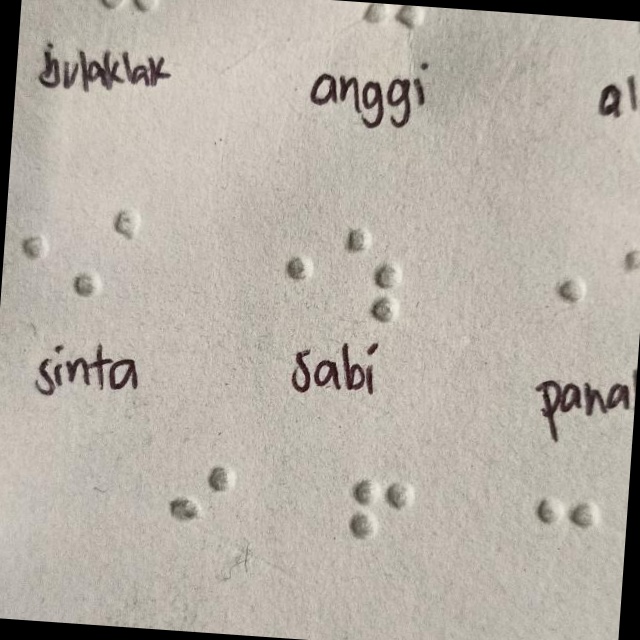 bulaklak anggi al
sinta sabi pana